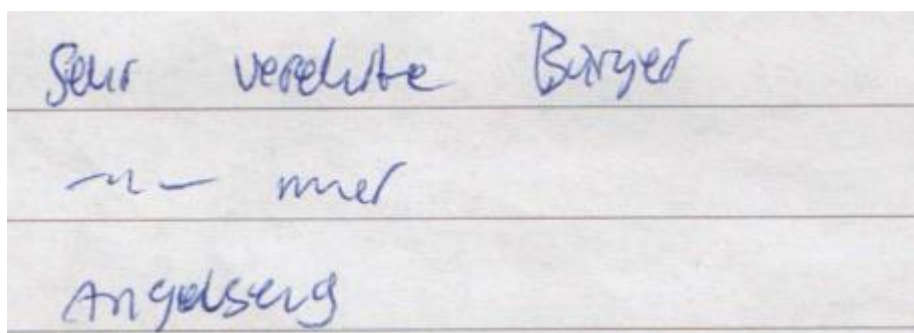 Sehr verehrte Bürger
—"—
Angelsberg